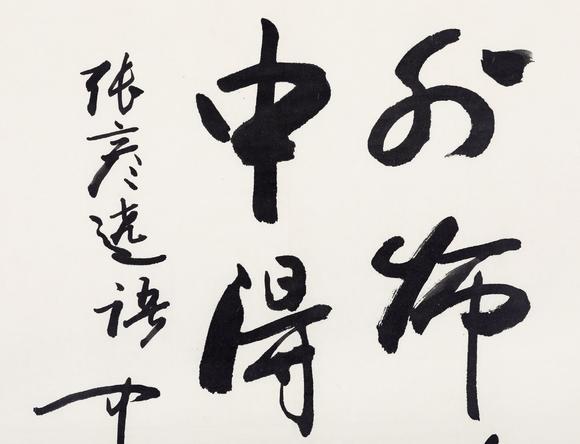 外师
中得
张彦远语